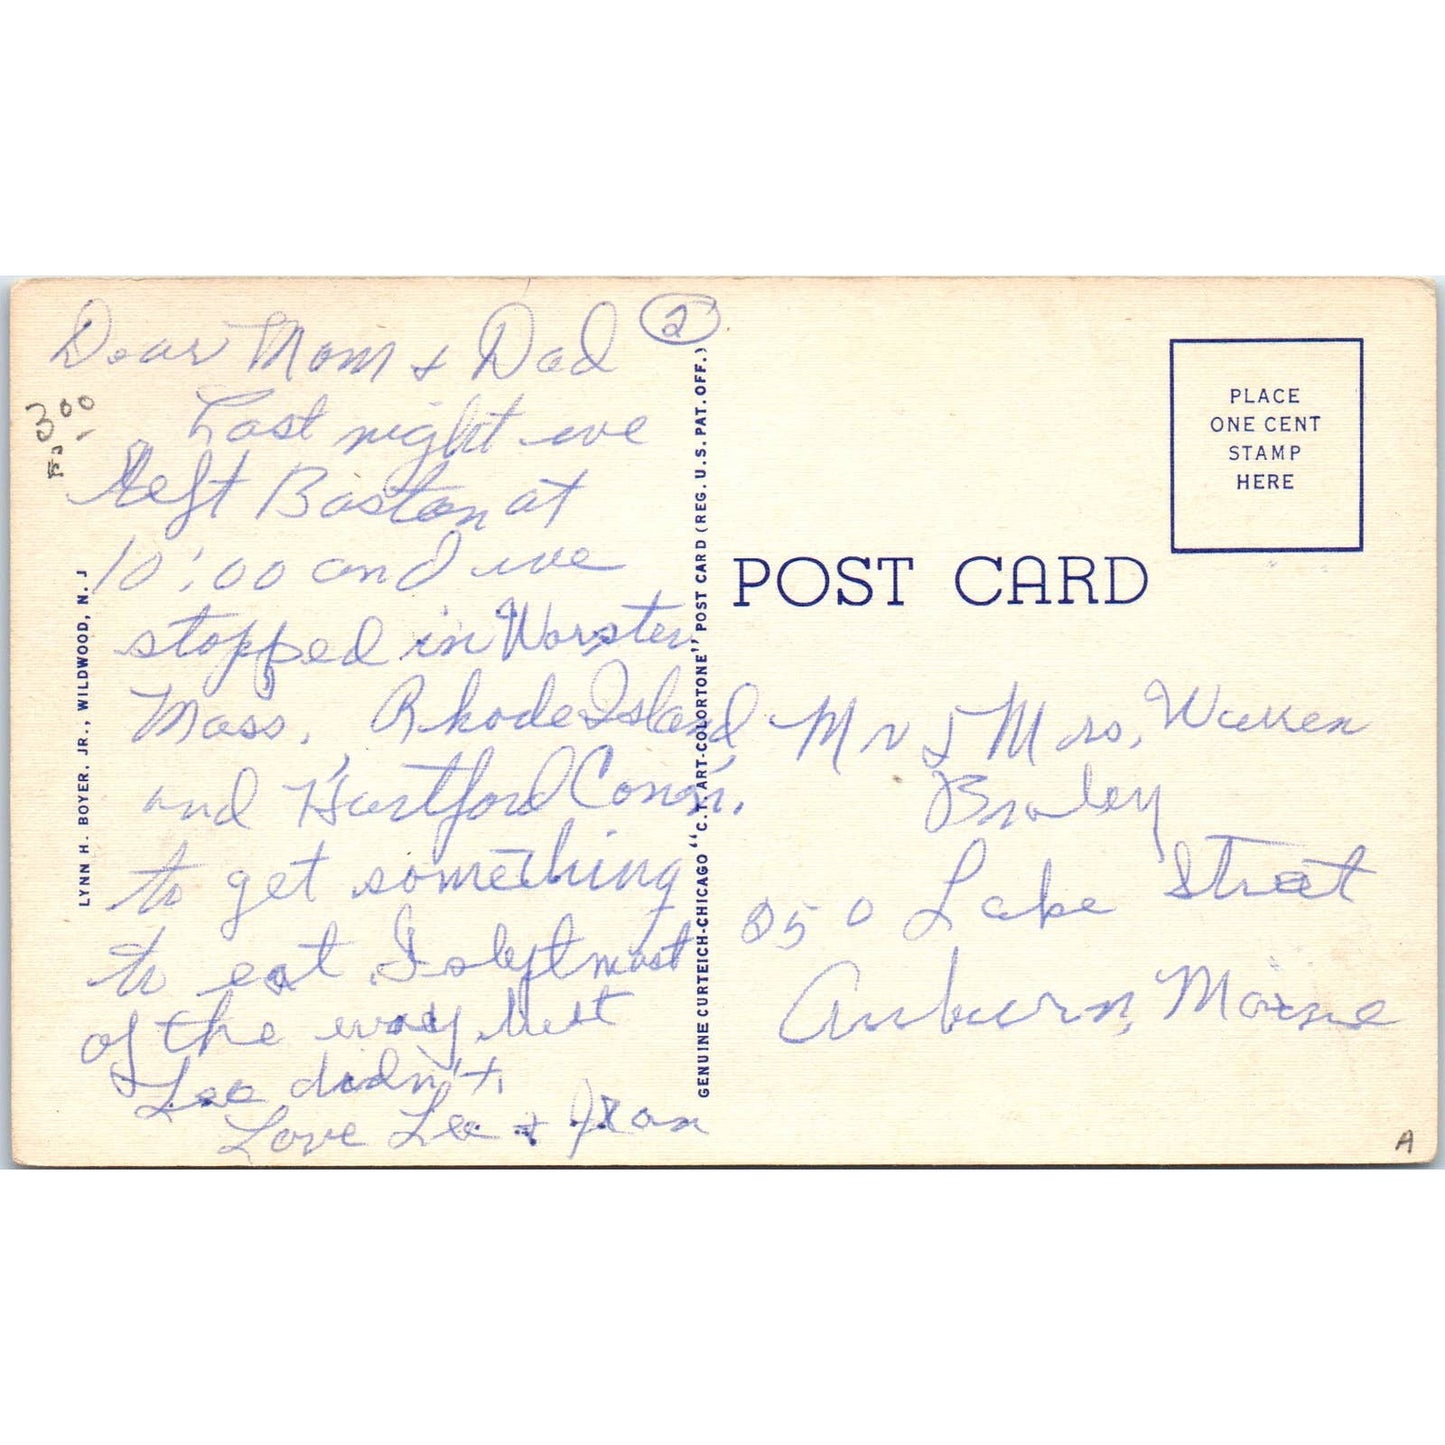 Dear Mom & Dad
2
Last night we
left Boston at
10:00 and we
stopped in Worster
Mass, Rhode Island
and Hartford Conn.
to get something
to eat. I slept most
of the way but
Lee didn't.
Love Lee & Jean
3 00
LYNN H. BOYER, JR., WILDWOOD, N. J
GENUINE CURTEICH-CHICAGO "C. T. ART-COLORTONE" POST CARD (REG. U.S. PAT. OFF.)
PLACE
ONE CENT
STAMP
HERE
POST CARD
Mr & Mrs, Warren
Braley
250 Lake Street
Auburn, Maine
A